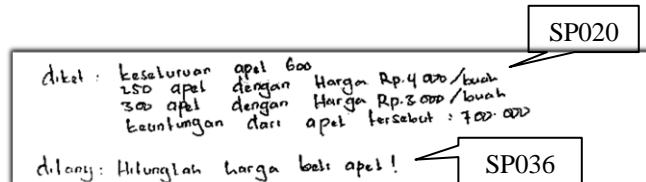 SP020
diket : keseluruan apel 600
250 apel dengan Harga Rp. 4 000 /buah
300 apel dengan Harga Rp. 3 000 /buah
keuntungan dari apel tersebut : 700.000
ditany : Hitunglah harga beli apel !
SP036